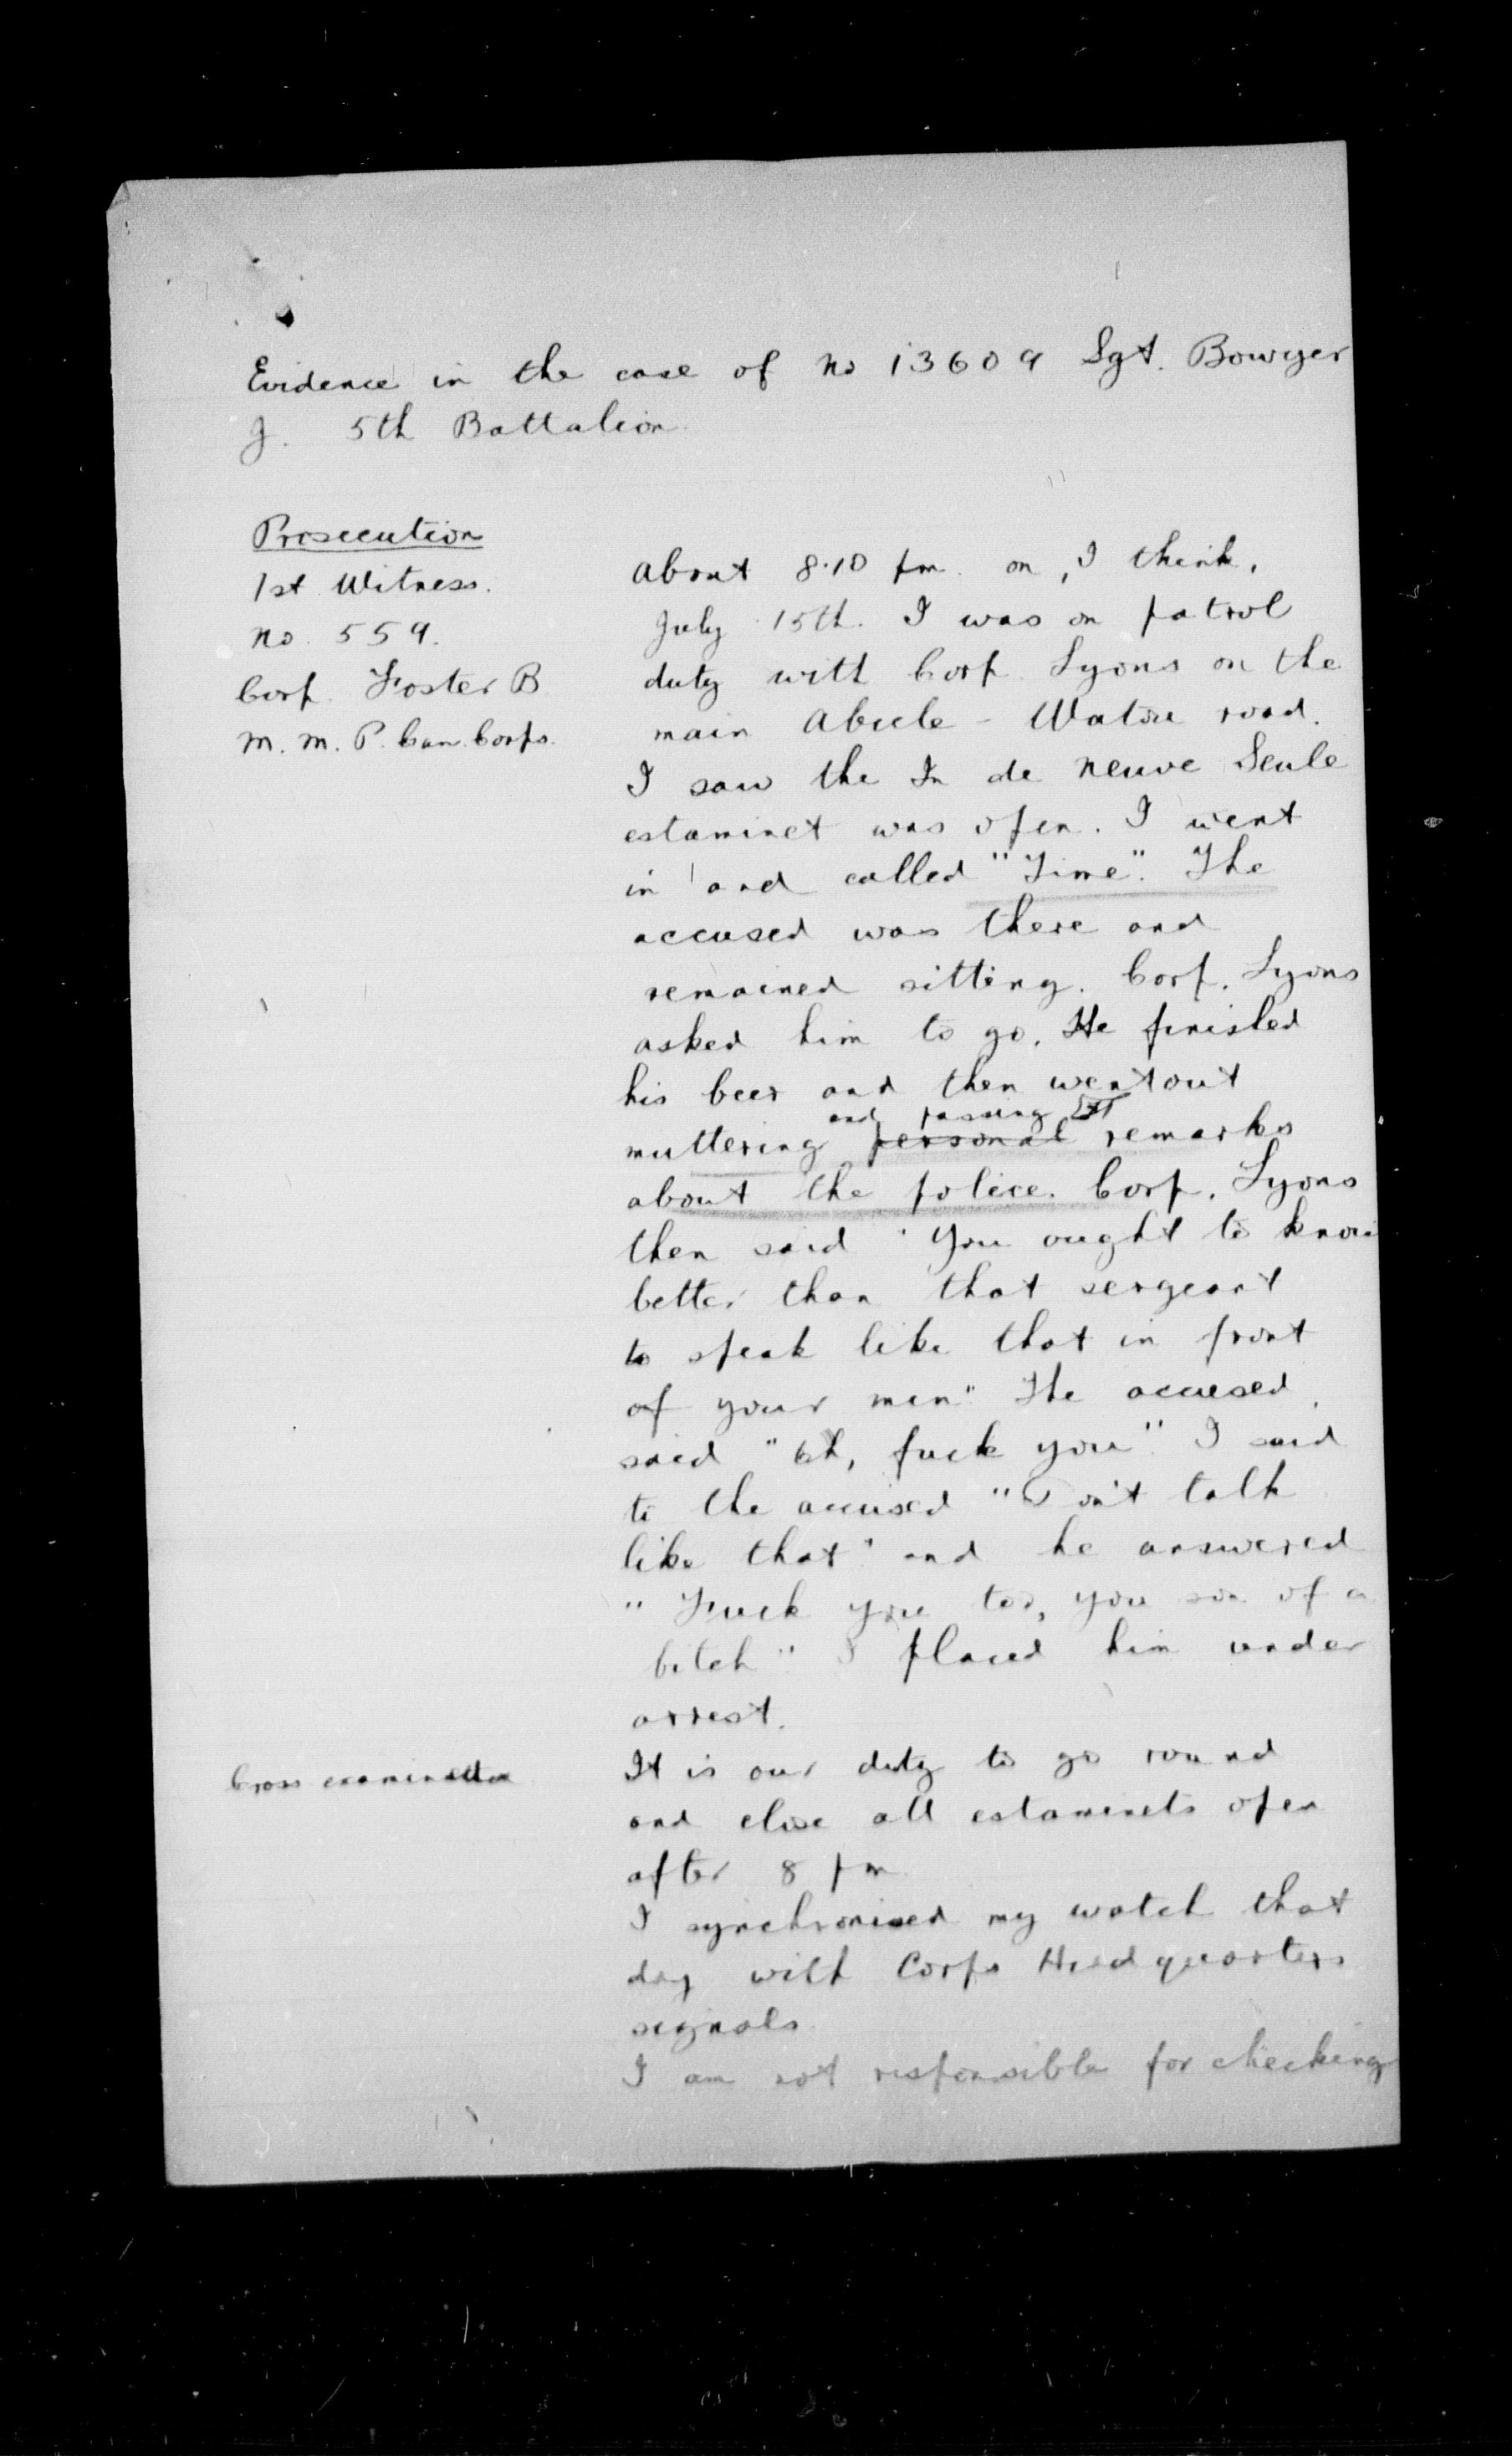 Evidence in the case of No 13609 Sgt. Bowyer
J. 5th Battalion
Prosecution
1st Witness.
No. 559.
Corp. Foster B
M. M. P. Can. Corps.
About 8.10 pm. on, I think,
July 15th. I was on patrol
duty with Corp. Lyons on the
main Abeele - Watou road.
I saw the In de Neuve Seule
estaminet was open. I went
in and called "Time". The
accused was there and
remained sitting. Corp. Lyons
asked him to go. He finished
his beer and then went out
and passing
muttering personal remarks
about the police. Corp. Lyons
then said "You ought to know
better than that sergeant
to speak like that in front
of your men" The accused
said "Oh, fuck you". I said
to the accused "Don't talk
like that" and he answered
"Fuck you too, you son of a
bitch" I placed him under
arrest.
Cross examination
It is our duty to go round
and close all estaminets open
after 8 pm
I synchronised my watch that
day with Corps Headquarters
signals.
I am not responsible for checking